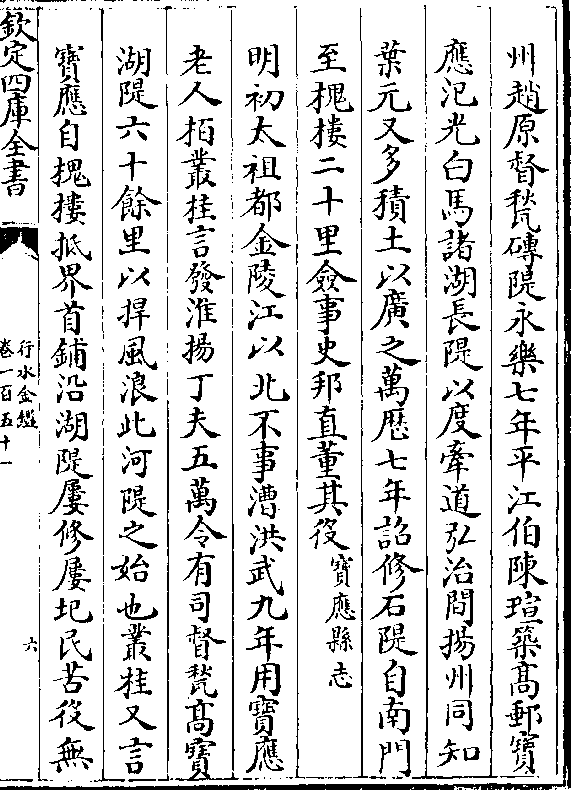 州趙原督甃磚隄永樂七年平江伯陳瑄築髙郵寶
應汜光白馬諸湖長隄以度牽道弘治間揚州同知
葉元又多積土以廣之萬厯七年詔修石隄自南門
至槐樓二十里僉事史邦直董其役寶應縣志
明初太祖都金陵江以北不事漕洪武九年用寶應
老人栢叢桂言發淮揚丁夫五萬令有司督甃髙寶
湖隄六十餘里以捍風浪此河隄之始也叢桂又言
寶應自槐樓抵界首鋪沿湖隄屢修屢圮民苦役無
欽定四庫全書
行水金鑑
卷一百五十一
六